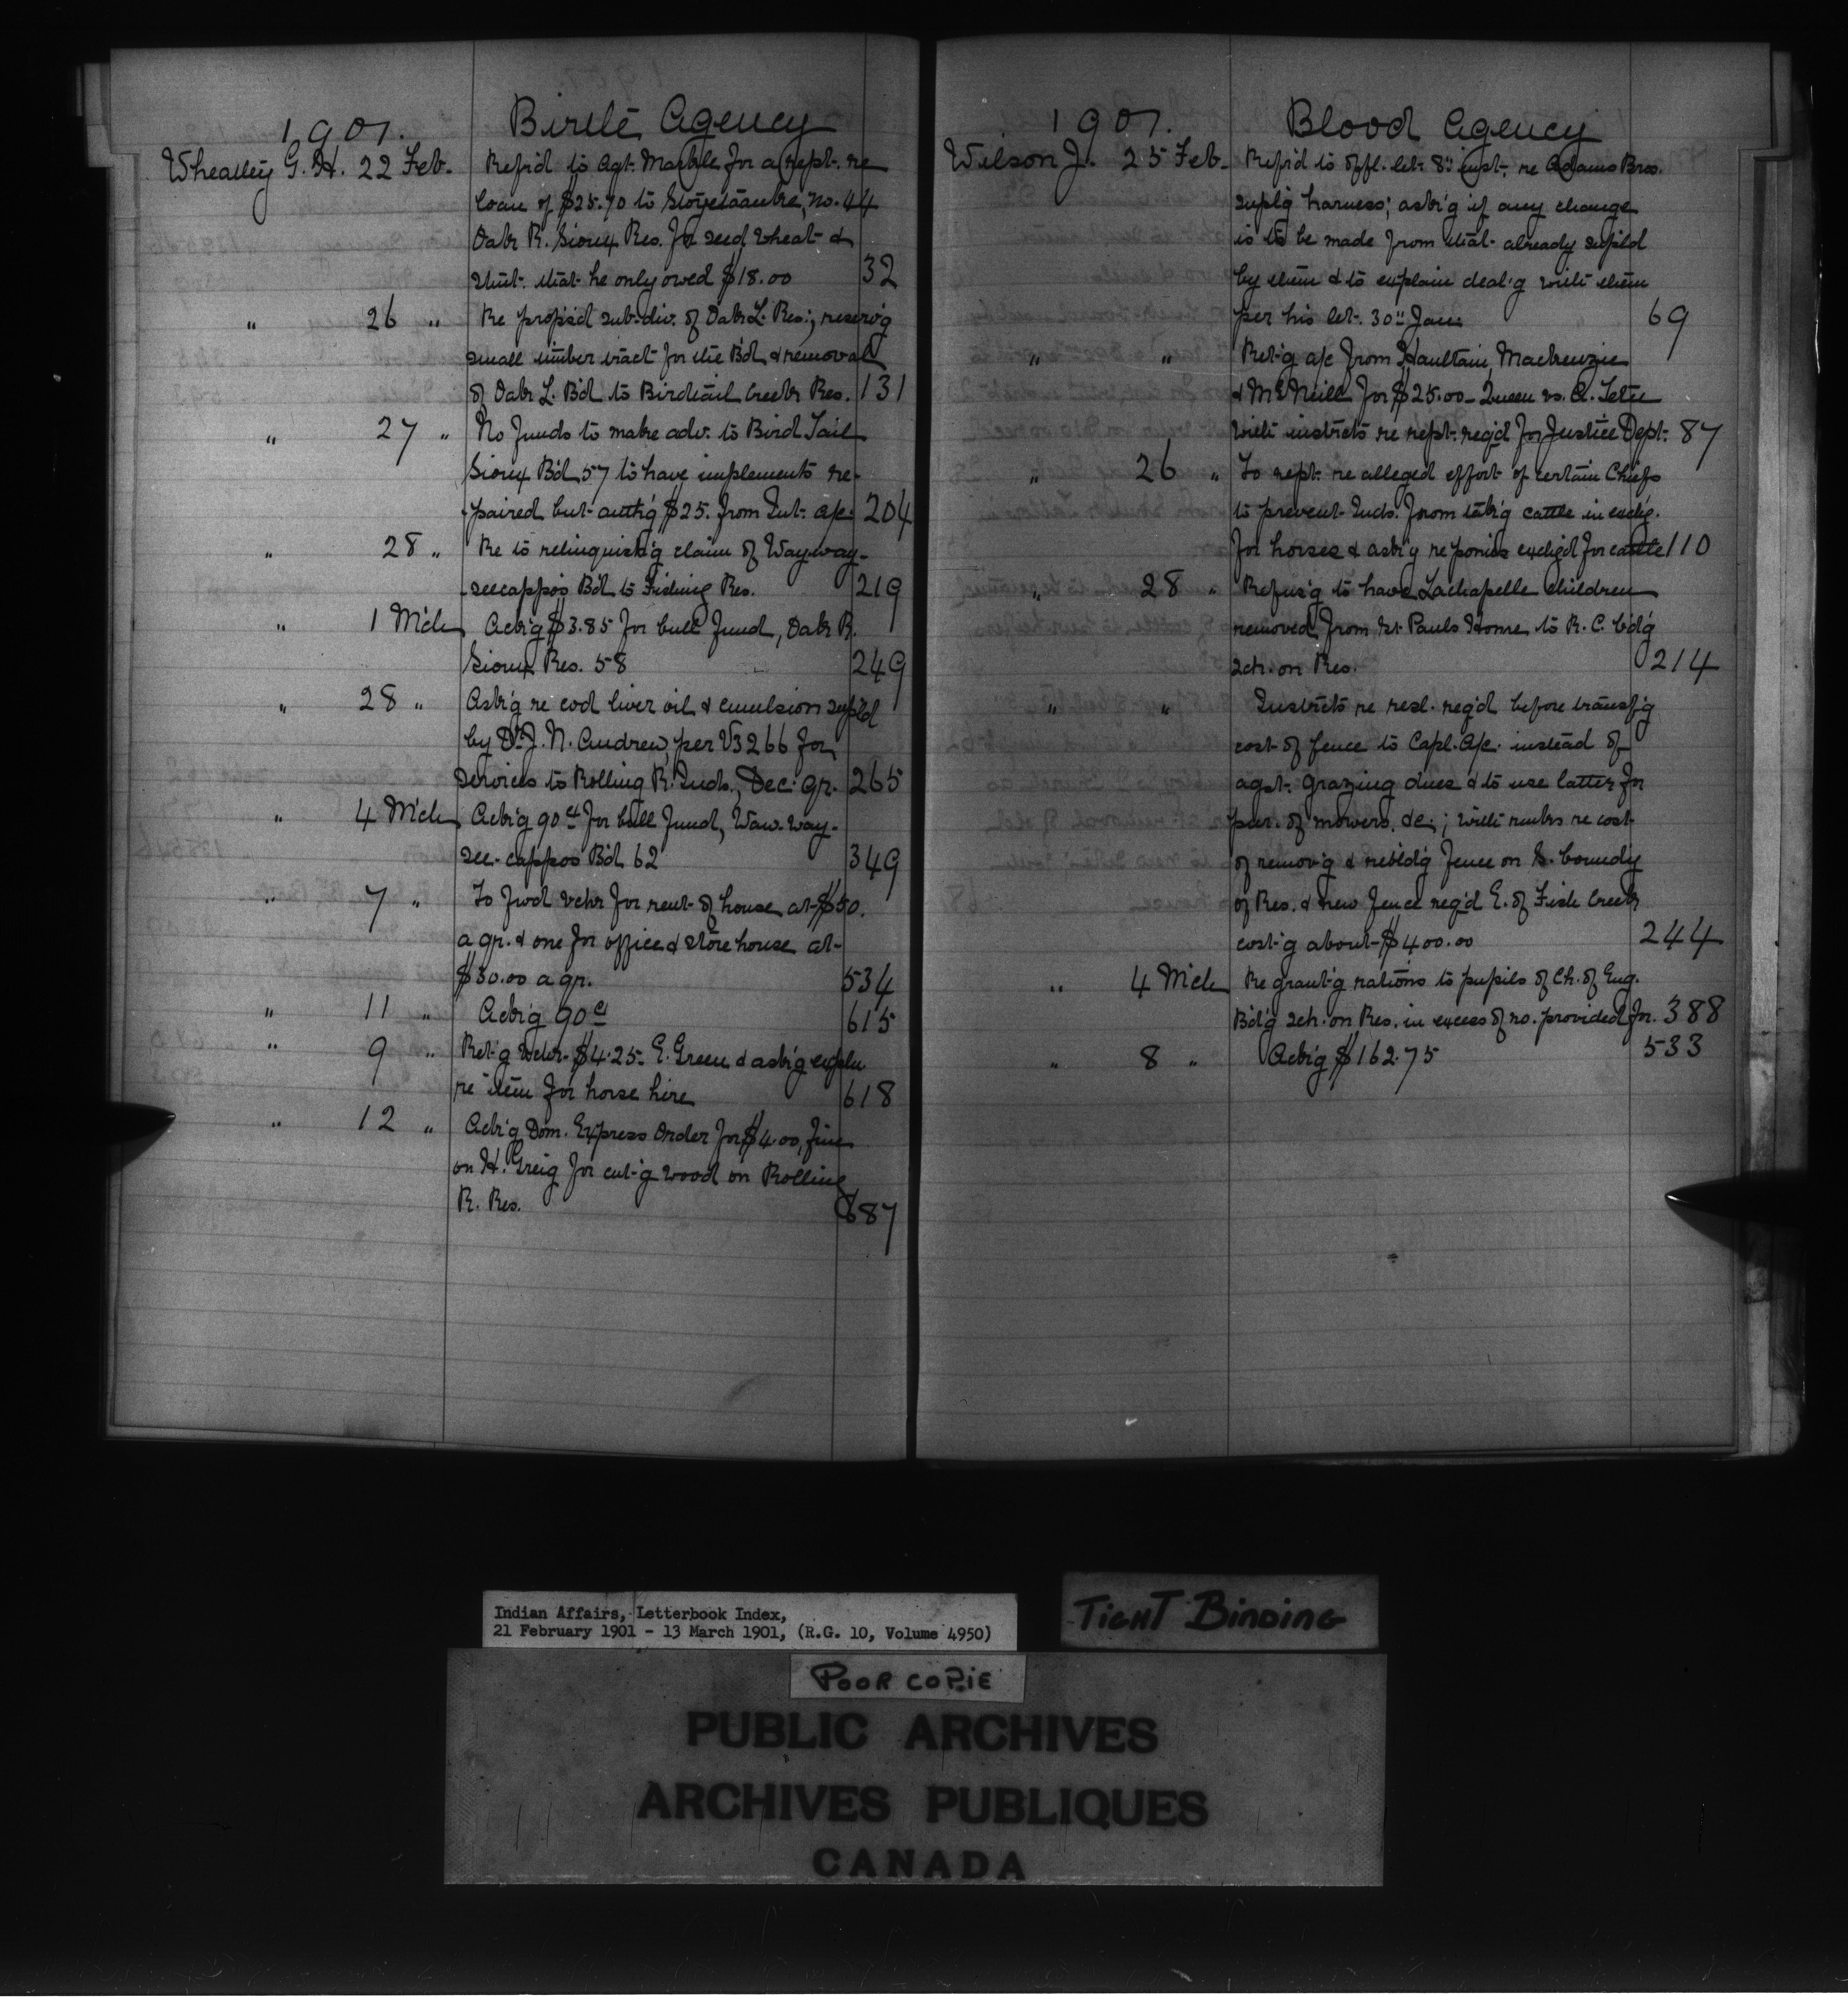 1901.
Birtle Agency
Wheatley G. H. 22 Feb. Ref'd to Agt. Markle for a rept. re
loan of $25.70 to no. 44
Oak R. Sioux Res. for seed wheat &
stmt. that he only owed $18.00 32
" 26 " Re propos'd sub-div. of Oak L. Res.; reserv'g
small timber tract for the B'd & removal
of Oak L. B'd to Birdtail Creek Res. 131
" 27 " No funds to make adv. to Bird Tail
Sioux B'd 57 to have implements re-
paired but auth'g $25. from Int. a/c. 204
" 28 " Re to relinquish'g claim of Wayway-
seecappo's B'd to Fishing Res. 219
" 1 Mch Ack'g $3.85 for bull fund, Oak R.
Sioux Res. 58 249
" 28 " Ask'g re cod liver oil & emulsion supl'd
by Dr. J. N. Andrew, per V3266 for
services to Rolling R. Inds., Dec. qr. 265
" 4 Mch Ack'g 90 cts for bull fund, Waw-way-
see-cappo's B'd 62 349
" 7 " To fwd vchr for rent of house at $50.
a qr. & one for office & store house at
$30.00 a qr. 534
" 11 " Ack'g 90 cts 615
" 9 " Ret'g vchr $4.25 E. Green & ask'g expln
re item for horse hire 618
" 12 " Ack'g Dom. Express Order for $4.00, fine
on H. Greig for cut'g wood on Rolling
R. Res. 687
1901.
Blood Agency
Wilson J. 25 Feb. Ref'd to offl. let. 8" inst. re Adams Bros.
supl'g harness; ask'g if any change
is to be made from that already supl'd
by them & to explain deal'g with them
per his let. 30" Jan. 69
" " Ret'g a/c from Haultain, Mackenzie
& McNeill for $25.00 - Queen vs. C. Tetu
with instrcts re rept. req'd for Justice Dept. 87
" 26 " To rept. re alleged effort of certain Chiefs
to prevent Inds. from tak'g cattle in exchg.
for horses & ask'g re ponies exchg'd for cattle 110
" 28 " Refus'g to have Lachapelle children
removed from St Pauls Home to R. C. b'd'g
sch. on Res. 214
" " Instrcts re resl. req'd before transf'g
cost of fence to Capl. a/c. instead of
agst. grazing dues & to use latter for
pur. of mowers, &c.; with rmks re cost
of remov'g & rebld'g fence on S. boundy
of Res. & new fence req'd E. of Fish Creek
cost'g about $400.00 244
" 4 Mch Re grant'g rations to pupils of Ch. of Eng.
Bd'g sch. on Res. in excess of no. provided for. 388
" 8 " Ack'g $162.75 533
Indian Affairs, Letterbook Index,
21 February 1901 - 13 March 1901, (R.G. 10, Volume 4950)
TIGHT BINDING
POOR COPIE
PUBLIC ARCHIVES
ARCHIVES PUBLIQUES
CANADA